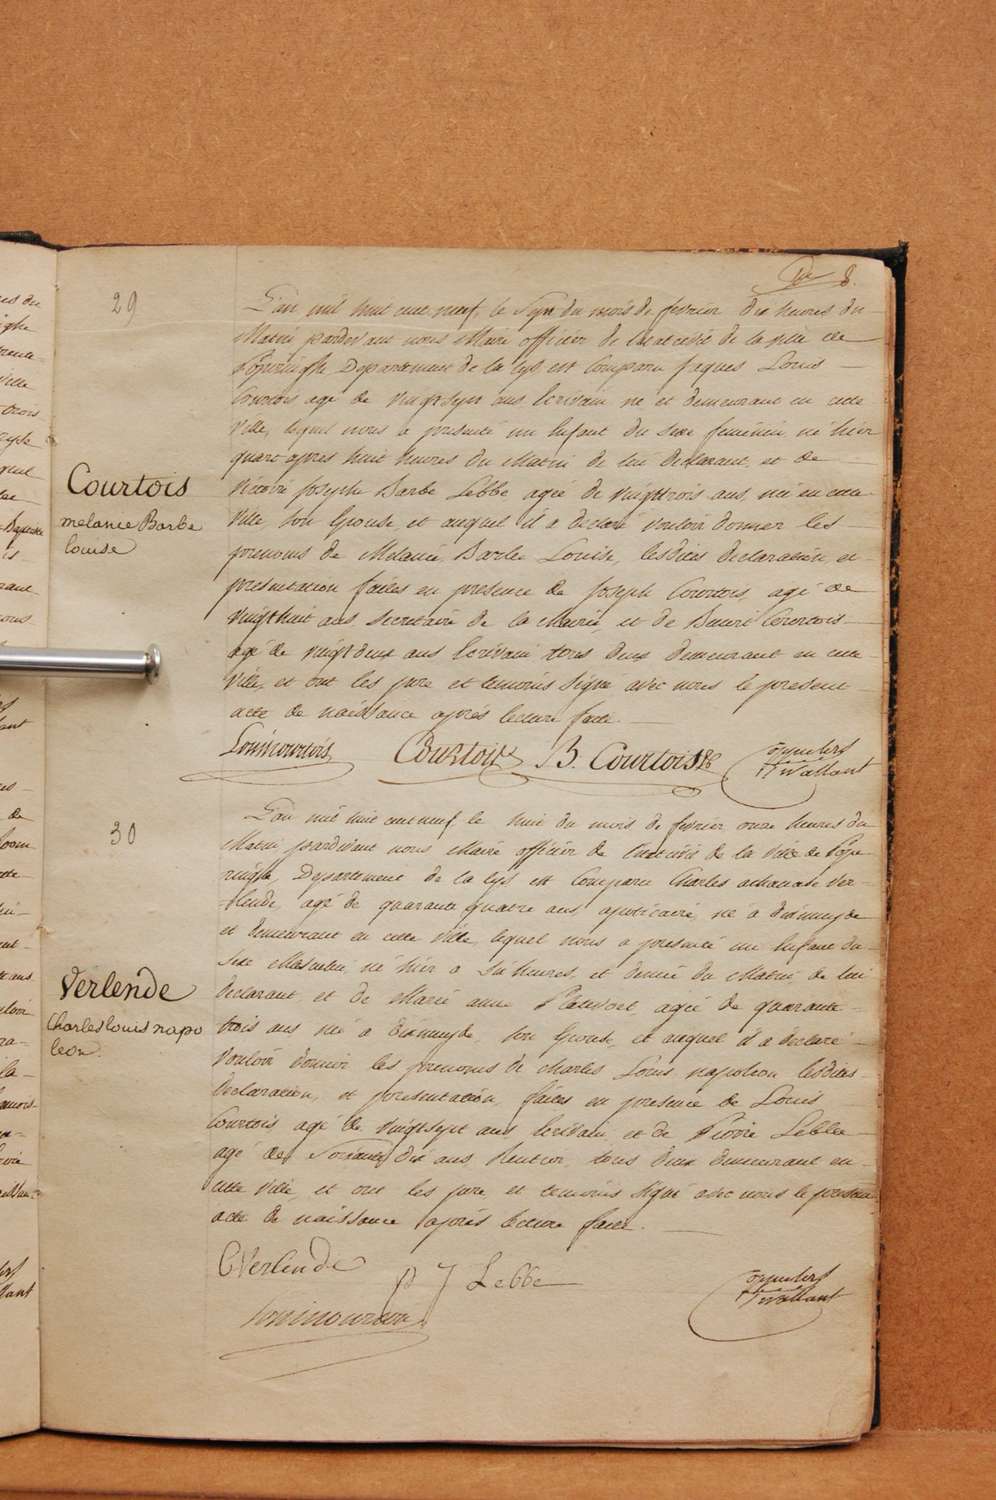 8.
29
L'an mil huit cent neuf, le sept du mois de fevrier dix heures du
Matin pardevant nous Maire officier de l'état civil de la ville de
Poperinghe Departement de la Lys est Comparu Jaques Louis
Courtois agé de vingt sept ans Ecrivain né et demeurant en cette
ville, lequel nous a presenté un Enfant du sexe feminin né hier
quart apres huit heures du Matin de lui Declarant, et de
Victoire Josephe Barbe Lebbe agée de vingttrois ans, née en cette
ville, son Epouse, et auquel il a declaré vouloir donner les
prenoms de Melanie, Barbe Louise, lesdites declaration et
presentation faites en presence de Joseph Courtois, agé de
vingthuit ans secretaire de la Mairie, et de Courtois
agé de vingt deux ans Ecrivain tous deux demeurant en cette
ville, et ont les pere et temoins signé avec nous le present
acte de naissance après lecture faite.
Courtois
melanie Barbe
louise
Louis Courtois Courtois B. Courtois
30
L'an mil huit cent neuf, le huit du mois de fevrier onze heures du
Matin, pardevant nous Maire officier de l'état civil de la ville de Pope
ringhe, Departement de la Lys est Comparu Charles Ver-
-lende, agé de quarante quatre ans, apoticaire, né à dixmuyde
et demeurant en cette ville, lequel nous a presenté un Enfant du
sexe Masculin, né hier à six heures, et demie du Matin, de lui
declarant, et de Marie anne agée de quarante
trois ans née à dixmuyde, son Epouse, et auquel il a declaré
vouloir donner les prenoms de Charles Louis napoleon lesdites
declaration, et presentation, faites en presence de Louis
Courtois agé de vingtsept ans Ecrivain, et de Pierre Lebbe
agé de Soixante dix ans Rentier, tous deux demeurant en
cette ville, et ont les pere, et temoins signé avec nous le present
acte de naissance après lecture faite.
Verlende
Charles louis napo
leon.
C Verlende
P J Lebbe
Louis Courtois